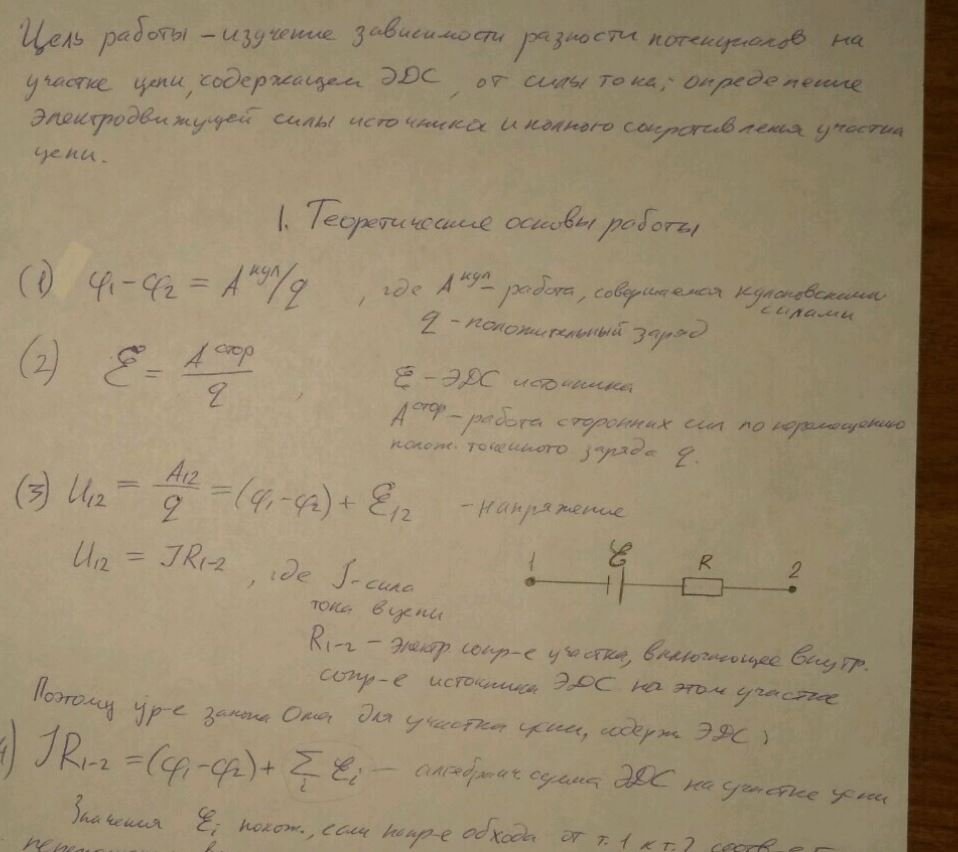 Цель работы – изучение зависимости разности потенциалов на
участке цепи, содержащем ЭДС, от силы тока; определение
электродвижущей силы источника и полного сопротивления участка
цепи.
1. Теоретические основы работы
(1) φ₁-φ₂ = A^кул/q , где A^кул – работа, совершаемая кулоновскими
силами
q - положительный заряд
(2) ℰ = A^стор/q , ℰ - ЭДС источника
A^стор – работа сторонних сил по перемещению
полож. точечного заряда q.
(3) U₁₂ = A₁₂/q = (φ₁-φ₂) + ℰ₁₂ - напряжение
U₁₂ = IR₁₋₂ , где I - сила
тока в цепи
1 ℰ R 2
R₁₋₂ – электр сопр-е участка, включающее внутр.
сопр-е источника ЭДС на этом участке
Поэтому ур-е закона Ома для участка цепи, содерж ЭДС:
4) IR₁₋₂ = (φ₁-φ₂) + ∑ᵢ ℰᵢ — алгебраич сумма ЭДС на участке цепи
Значения ℰᵢ полож., если напр-е обхода от т. 1 к т. 2